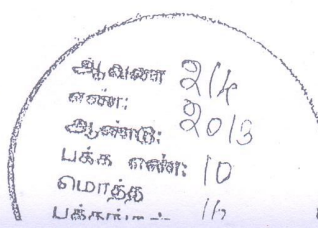 ஆவண 214
எண்:
ஆண்டு: 2013
பக்க எண்: 10
மொத்த
பக்கங்கள் 16